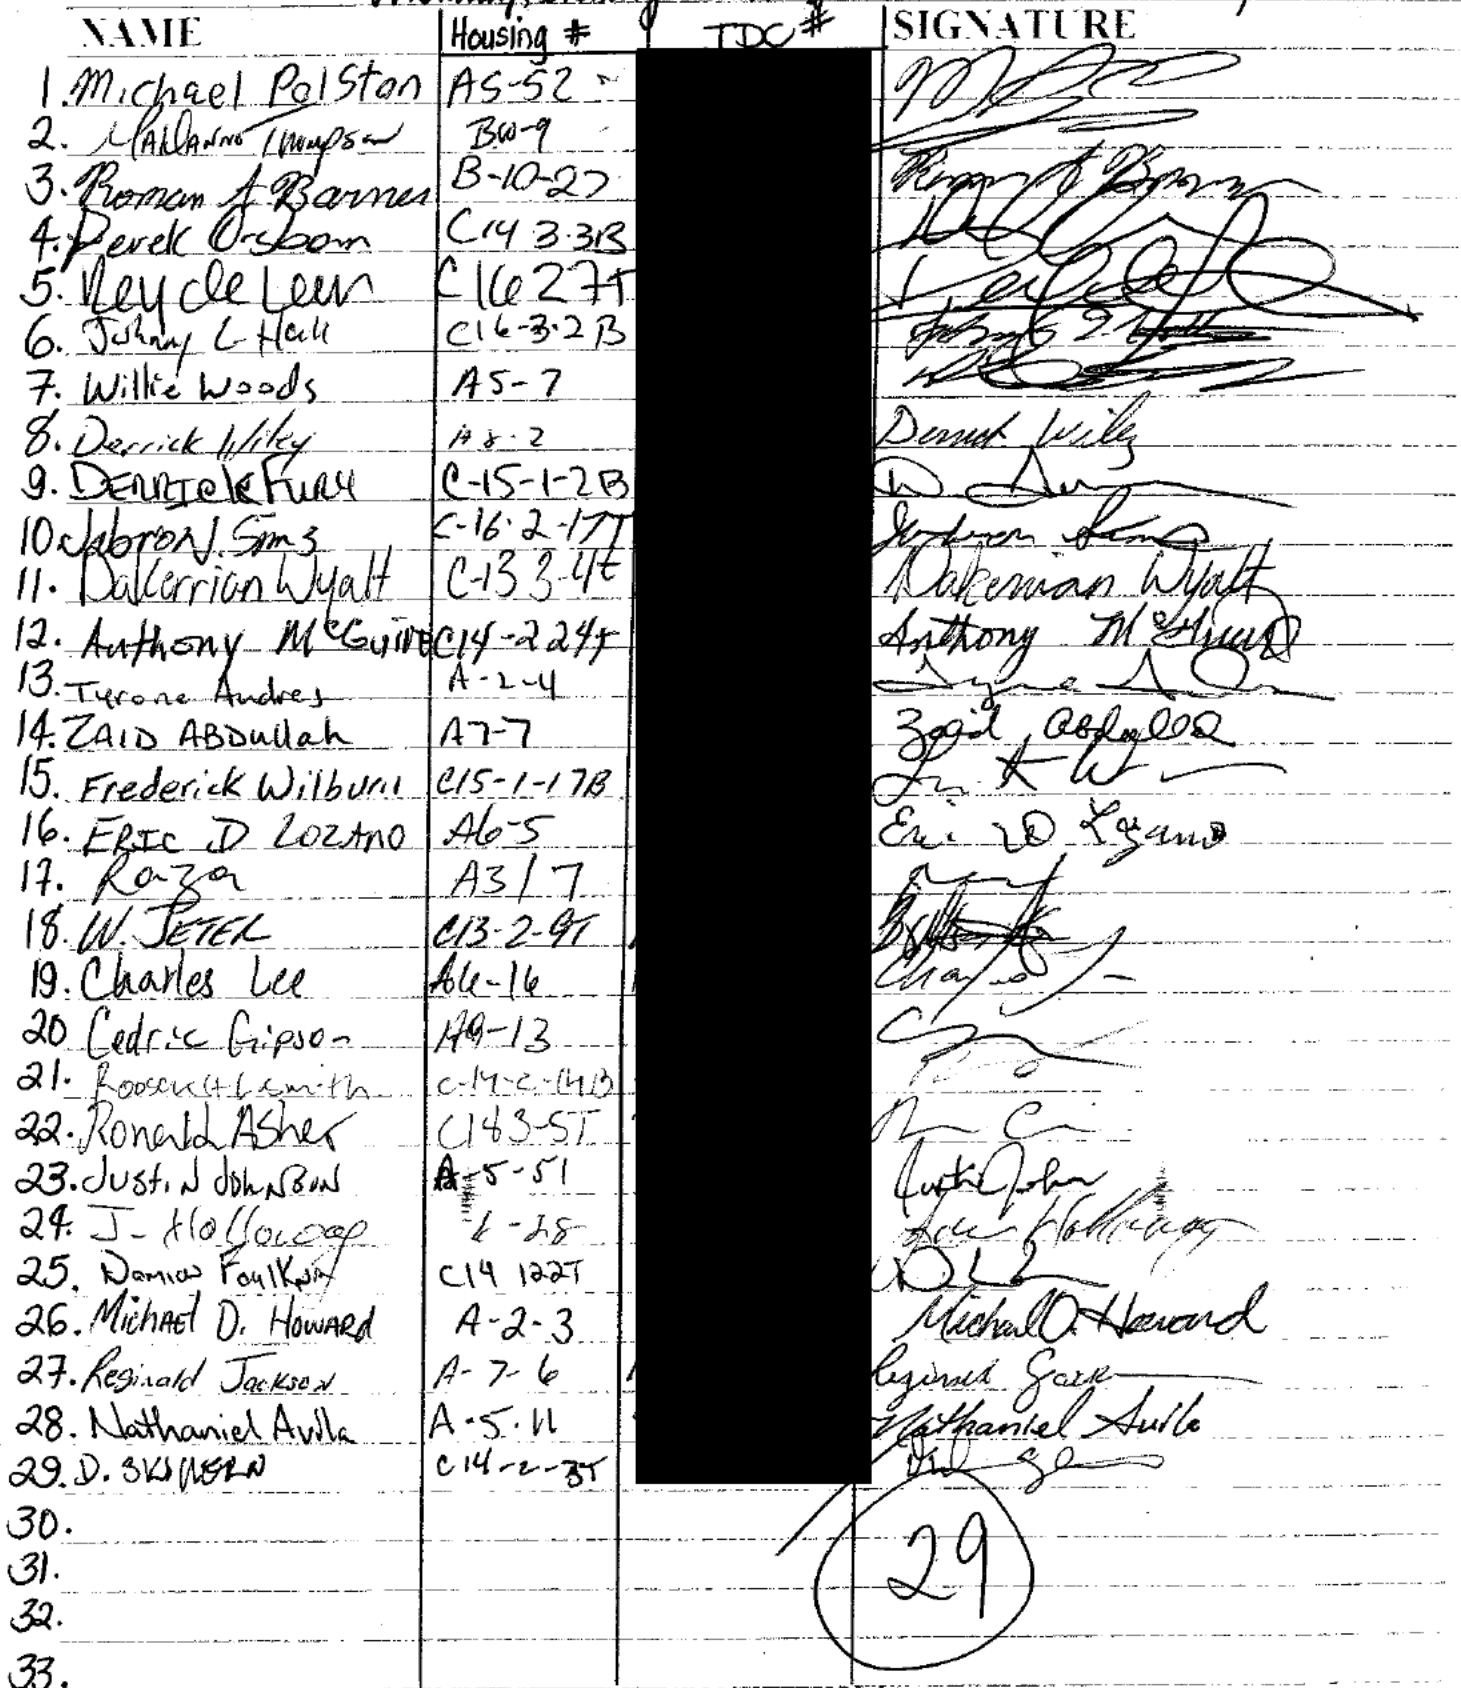 NAME Housing # TDC # SIGNATURE
1. Michael Polston A5-52
2. Thompson BW-9
3. Roman A Barnes B-10-27
4. Derek Orsborn C14 3-3B
5. Rey de Leon C16 27T
6. Johnny L Hall C16-3-2B
7. Willie Woods A5-7
8. Derrick Wiley A8-2 Derrick Wiley
9. DERRICK FURY C-15-1-2B
10. Jabron J. Sims C-16-2-17T
11. Dakerrian Wyatt C-13 3-4t Dakerrian Wyatt
12. Anthony McGuire C14-224T Anthony McGuire
13. Tyrone Andres A-2-4
14. ZAID ABDullah A7-7 Zaid Abdullah
15. Frederick Wilburn C15-1-17B
16. ERIC D LOZANO A6-5 Eric D Lozano
17. Raza A3/7
18. W. JETER C13-2-9T
19. Charles Lee A6-16
20 Cedric Gipson A9-13
21. Roosevelt Smith
22. Ronald Asher C143-5T
23. Justin Johnson A-5-51 Justin John
24. J- Holloway Holloway
25. Damion Faulkner C14 122T
26. Michael D. Howard A-2-3 Michael D. Howard
27. Reginald Jackson A-7-6 Reginald
28. Nathaniel Avila A-5-11 Nathaniel Avila
29. D. SKIPPERN C14-2-3T
29
30.
31.
32.
33.